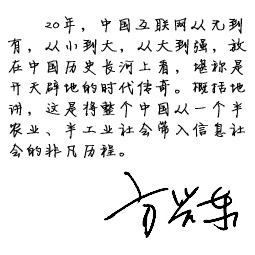 20年，中国互联网从无到
有，从小到大，从大到强，放
在中国历史长河上看，堪称是
开天辟地的时代传奇。概括地
讲，这是将整个中国从一个半
农业、半工业社会带入信息社
会的非凡历程。
方兴东